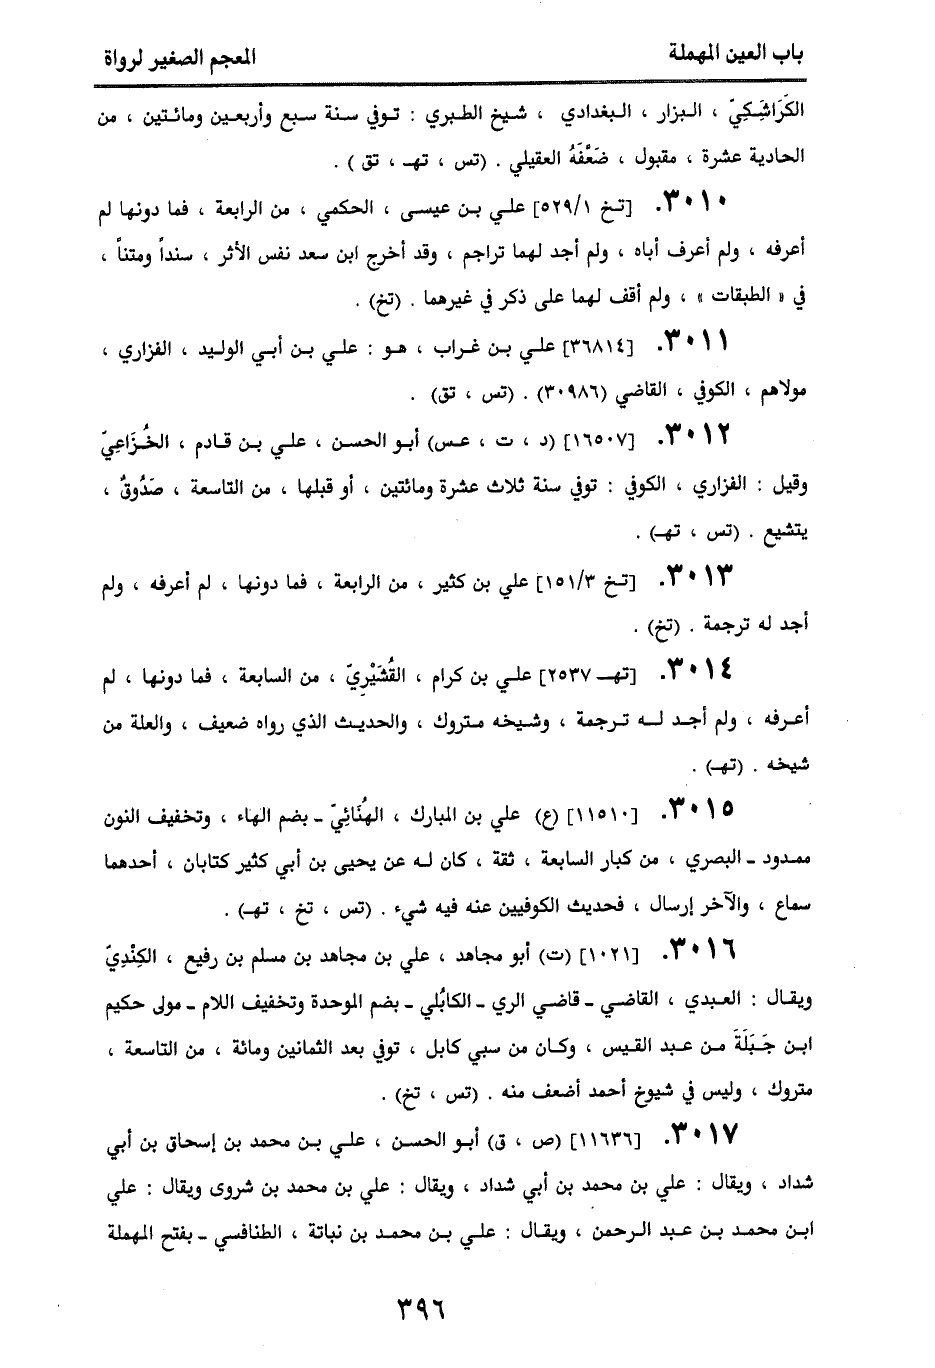 باب العين المهملة
المعجم الصغير لرواة
الكَرَاشَكِيّ ، البزار ، البغدادي ، شيخ الطبري : توفي سنة سبع وأربعين ومائتين ، من
الحادية عشرة ، مقبول ، ضَعَّفَهُ العقيلي . (تس ، تهـ ، تق ) .
٣٠١٠. [تخ ٥٢٩/١] علي بن عيسى ، الحكمي ، من الرابعة ، فما دونها لم
أعرفه ، ولم أعرف أباه ، ولم أجد لهما تراجم ، وقد أخرج ابن سعد نفس الأثر ، سنداً ومتناً ،
في « الطبقات » ، ولم أقف لهما على ذكر في غيرهما . (تخ) .
٣٠١١. [٣٦٨١٤] علي بن غراب ، هو : علي بن أبي الوليد ، الفزاري ،
مولاهم ، الكوفي ، القاضي (٣٠٩٨٦) . (تس ، تق) .
٣٠١٢. [١٦٥٠٧] (د ، ت ، عس) أبو الحسن ، علي بن قادم ، الخُزَاعِيّ
وقيل : الفزاري ، الكوفي : توفي سنة ثلاث عشرة ومائتين ، أو قبلها ، من التاسعة ، صَدُوقٌ ،
يتشيع . (تس ، تهـ) .
٣٠١٣. [تخ ١٥١/٣] علي بن كثير ، من الرابعة ، فما دونها ، لم أعرفه ، ولم
أجد له ترجمة . (تخ) .
٣٠١٤. [تهـ ٢٥٣٧] علي بن كرام ، القُشَيْرِيّ ، من السابعة ، فما دونها ، لم
أعرفه ، ولم أجد له ترجمة ، وشيخه متروك ، والحديث الذي رواه ضعيف ، والعلة من
شيخه . (تهـ) .
٣٠١٥. [١١٥١٠] (ع) علي بن المبارك ، الهُنَائِيّ ـ بضم الهاء ، وتخفيف النون
ممدود ـ البصري ، من كبار السابعة ، ثقة ، كان له عن يحيى بن أبي كثير كتابان ، أحدهما
سماع ، والآخر إرسال ، فحديث الكوفيين عنه فيه شيء . (تس ، تخ ، تهـ) .
٣٠١٦. [١٠٢١] (ت) أبو مجاهد ، علي بن مجاهد بن مسلم بن رفيع ، الكِنْدِيّ
ويقال : العبدي ، القاضي ـ قاضي الري ـ الكابُلي ـ بضم الموحدة وتخفيف اللام ـ مولى حكيم
ابن جَبَلَةَ من عبد القيس ، وكان من سبي كابل ، توفي بعد الثمانين ومائة ، من التاسعة ،
متروك ، وليس في شيوخ أحمد أضعف منه . (تس ، تخ) .
٣٠١٧. [١١٦٣٦] (ص ، ق) أبو الحسن ، علي بن محمد بن إسحاق بن أبي
شداد ، ويقال : علي بن محمد بن أبي شداد ، ويقال : علي بن محمد بن شروى ويقال : علي
ابن محمد بن عبد الرحمن ، ويقال : علي بن محمد بن نباتة ، الطنافسي ـ بفتح المهملة
٣٩٦